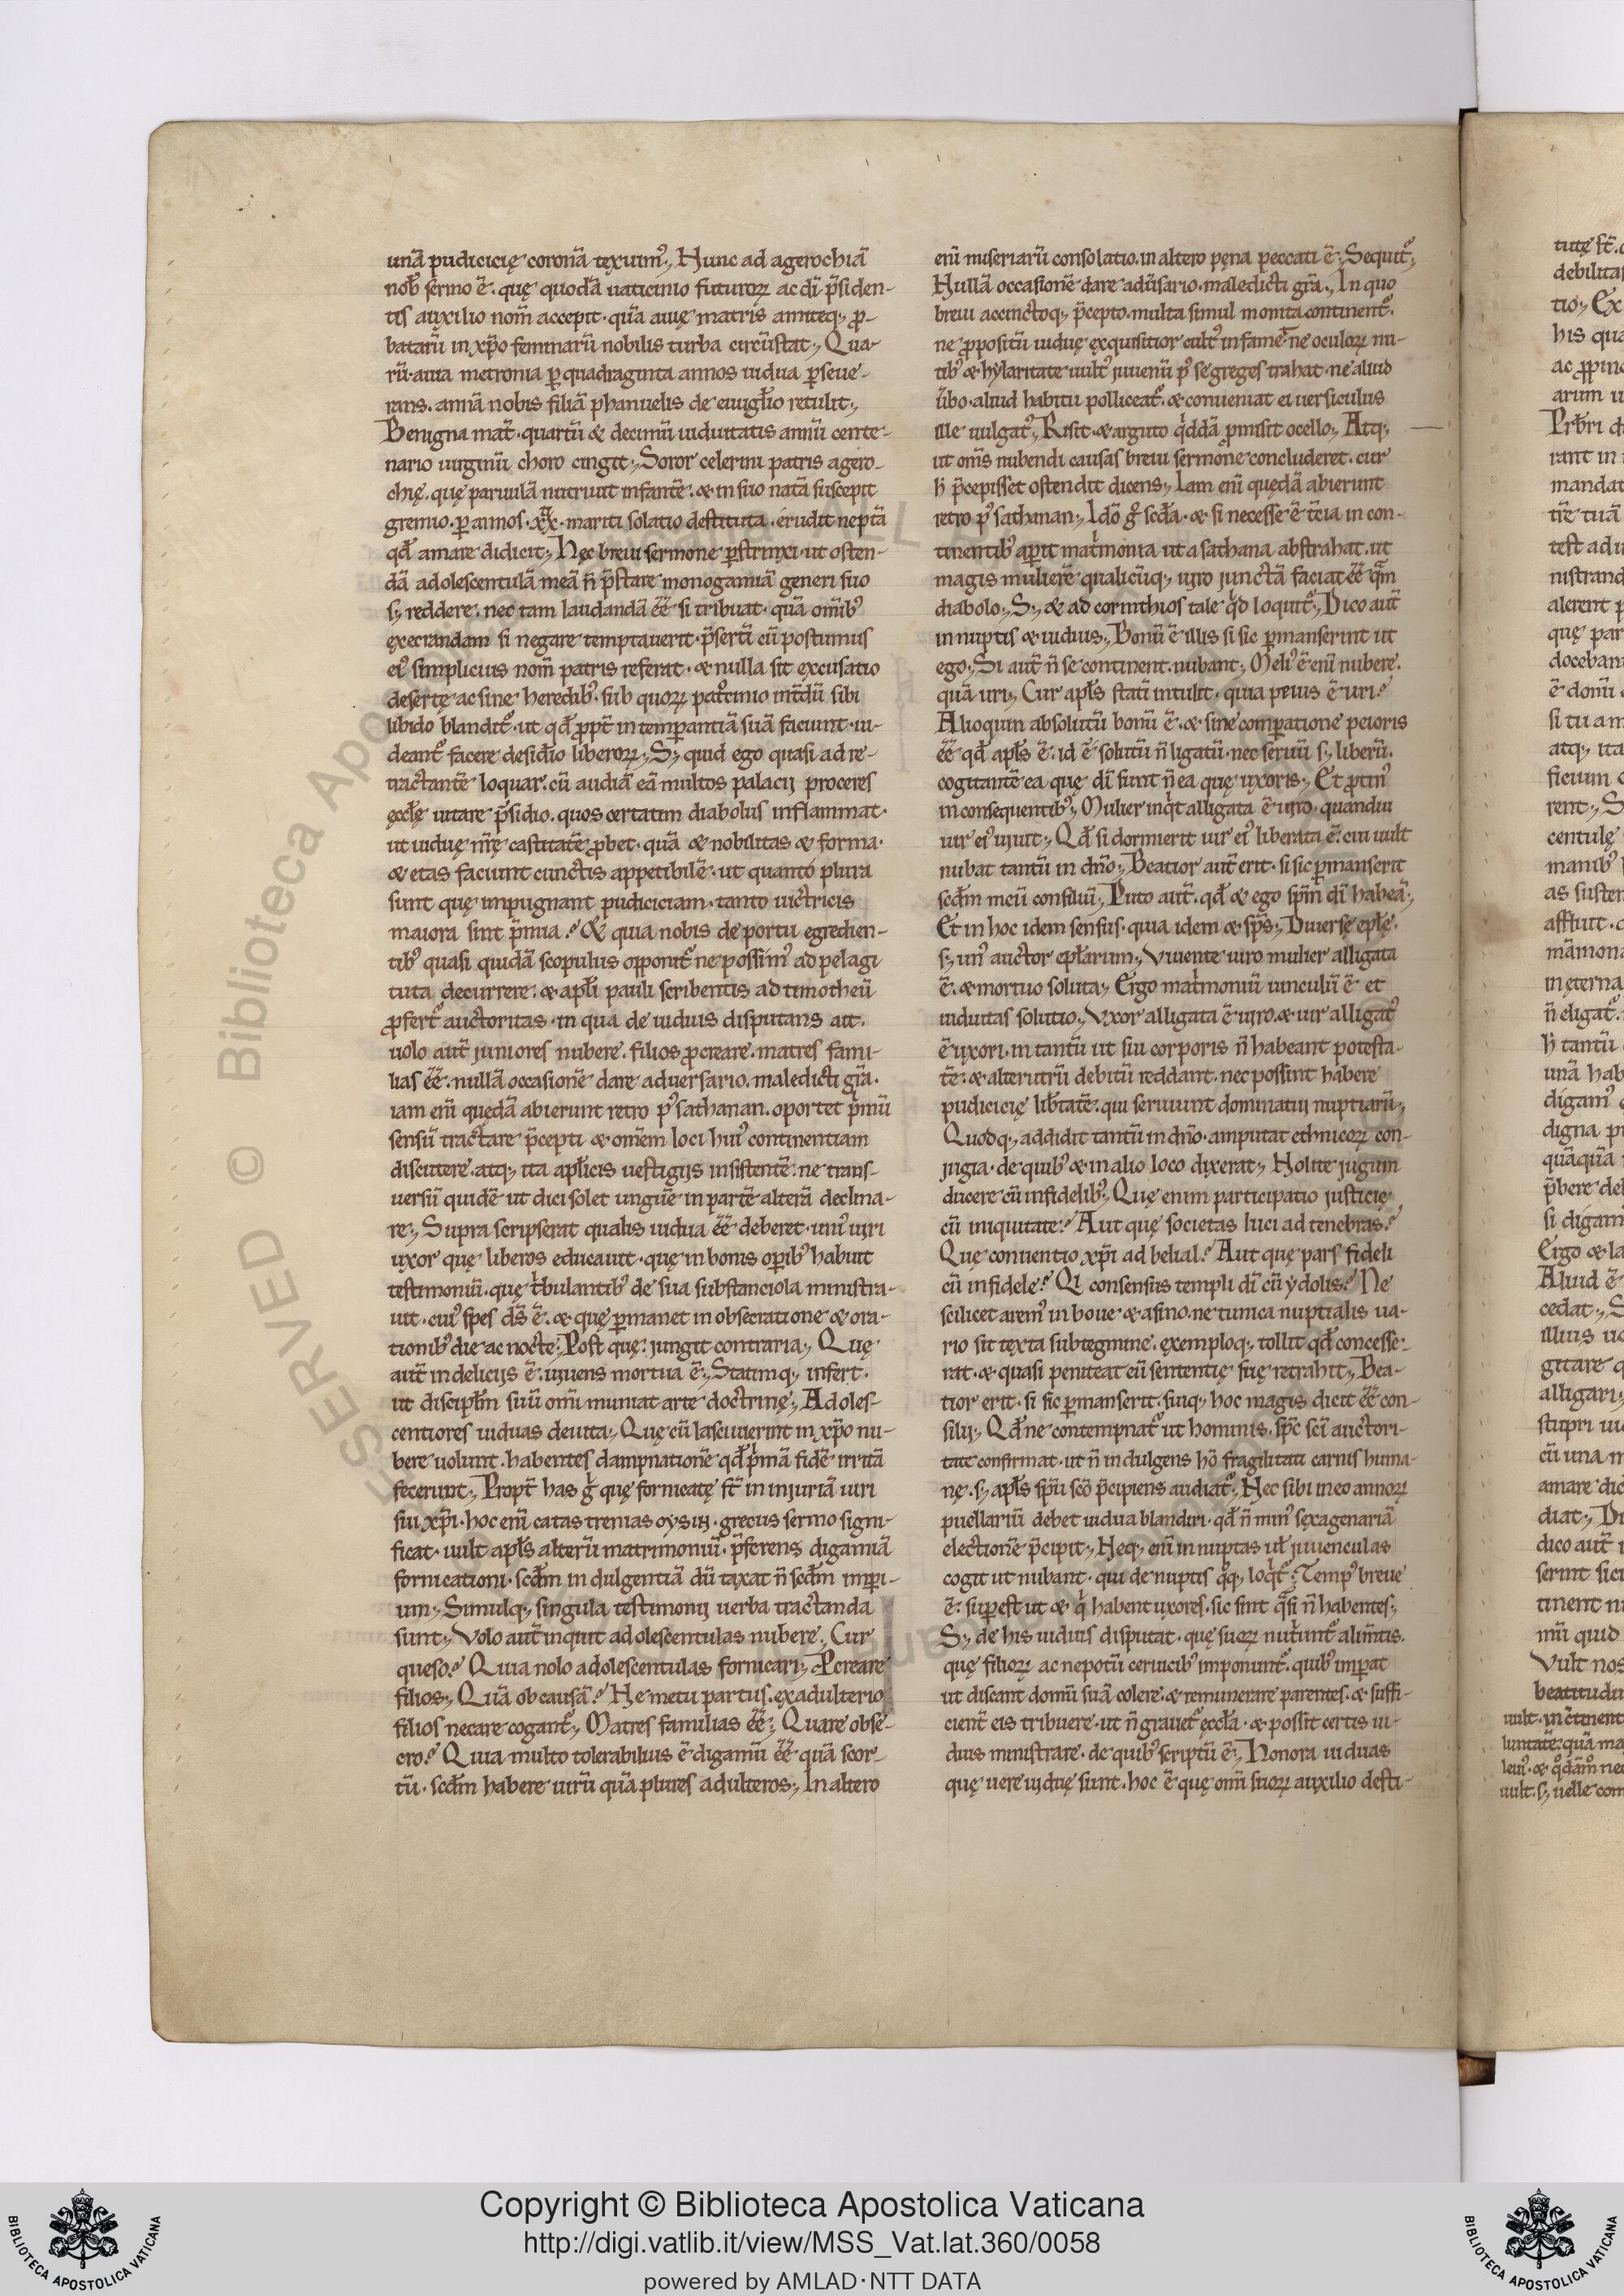 unã pudicicię coronã texuim᷒. Hunc ad agerochiã
nob̃ sermo ẽ. quę quodã uaticinio futuroꝝ ac dĩ p̃siden-
tis auxilio nom̃ accepit. quã auię matris amiteq; ꝓ-
batarũ in xp̃o feminarũ nobilis turba circũstat. Qua-
rũ auia metronia ꝑ quadraginta annos uidua ꝑseue-
rans. annã nobis filiã phanuelis de euuigl̃io retulit.
Benigna mat̃. quartũ & decimũ uiduitatis annũ cente-
nario uirginũ choro cingit. Soror celerini patris agero-
chię. quę paruulã nutriuit infantẽ. & in suo natã suscepit
gremio. ꝑ annos .xx. mariti solatio destituta. erudit neptã
qđ amare didicit. Hęc breui sermone ꝑstrinxi. ut osten-
dã adolescentulã meã ñ p̃stare monogamiã generi suo
s; reddere. nec tam laudandã ẽẽ si tribuat. quã omĩb᷒
exęcrandam si negare temptauerit. p̃sertĩ cũ postumus
ei᷒ simplicius nom̃ patris referat. & nulla sit excusatio
desertę ac sine heredib᷒. sub quoꝝ pat̊cinio int̃dũ sibi
libido blandit᷑. ut qđ ꝓpt̃ intemꝑantiã suã faciunt. ui-
deant᷑ facere desid̃io liberoꝝ. S; quid ego quasi ad re-
tractantẽ loquar. cũ audiã eã multos palacij proceres
ęccl̃ę uitare p̃sidio. quos certatim diabolus inflammat.
ut uiduę m̃ę castitatẽ ꝓbet. quã & nobilitas & forma.
& etas faciunt cunctis appetibilẽ. ut quanto plura
sunt quę impugnant pudiciciam. tanto uictricis
maiora sint p̃mia. & quia nobis de portu egredien-
tib᷒ quasi quidã scopulus opponit᷑ ne possim᷒ ad pelagi
tuta decurrere. & apl̃i pauli scribentis ad timotheũ
ꝓfert᷑ auctoritas. in qua de uiduis disputans ait.
uolo aut̃ juniores nubere. filios ꝓcreare. matres fami-
lias ẽẽ. nullã occasionẽ dare aduersario. maledicti gr̃a.
iam enĩ quędã abierunt retro p᷒ sathanan. oportet p̃mũ
sensũ tractare p̃cepti & om̃em loci hui᷒ continentiam
discutere. atq; ita apl̃icis uestigijs insistentẽ. ne trans-
uersũ quidẽ ut dici solet unguẽ in partẽ alterã declina-
re. Supra scripserat qualis uidua ẽẽ deberet. uni᷒ uiri
uxor quę liberos educauit. quę in bonis oꝑib᷒ habuit
testimoniũ. quę tͥbulantib᷒ de sua substanciola ministra-
uit. cui᷒ spes ds̃ ẽ. & quę ꝑmanet in obsecratione & ora-
tionib᷒ die ac nocte. Post quę. jungit contraria. Quę
aut̃ in delicijs ẽ. uiuens mortua ẽ. Statimq; infert.
ut discipl̃m suũ omĩ muniat arte doctrinę. Adoles-
centiores uiduas deuita. Quę cũ lasciuierint in xp̃o nu-
bere uolunt. habentes dampnationẽ qđ pͥmã fidẽ irritã
fecerunt. Propt̃ has gͥ quę fornicatę st̃ in injuriã uiri
sui xp̃i. hoc enĩ catastrenias oysin. grecus sermo signi-
ficat. uult apl̃s alterũ matrimoniũ. p̃ferens digamiã
fornicationi. scđm indulgentiã dũ taxat ñ scđm imꝑi-
um. Simulq; singula testimonij uerba tractanda
sunt. Volo aut̃ inquit adolescentulas nubere. Cur
queso? Quia nolo adolescentulas fornicari. Pcreare
filios. Quã ob causã? Ne metu partus. ex adulterio
filios necare cogant᷑. Matres familias ẽẽ. Quare obse-
cro? Quia multo tolerabilius ẽ digamũ ẽẽ quã scor-
tũ. scđm habere uirũ quã plures adulteros. In altero
enĩ miseriarũ consolatio. in altero pęna peccati ẽ. Sequit᷑.
Nullã occasionẽ dare adũsario. maledicti gr̃a. In quo
breui accinctoq; p̃cepto. multa simul monita continent᷑.
ne ꝓpositũ uiduę exquisitior cult᷒ infamet. ne oculoꝝ nu-
tib᷒ & hylaritate uult᷒ juuenũ p᷒ se greges trahat. ne aliud
ũbo. aliud habitu polliceat᷑. & conueniat ei uersiculus
ille uulgat᷒. Risit. & arguto qͥddã ꝓmisit ocello. Atq;
ut om̃s nubendi causas breui sermone concluderet. cur
h̃ p̃cepisset ostendit dicens. Iam enĩ quędã abierunt
retro p᷒ sathanan. Idõ gͦ scđa. & si necesse ẽ t̃cia in con-
tinentib᷒ aꝑit mat̃monia ut a sathana abstrahat. ut
magis mulierẽ qualicũq; uiro junctã faciat ẽẽ qͣm
diabolo. S; & ad corinthios tale qͥd loquit᷑. Dico aut̃
innuptis & uiduis. Bonũ ẽ illis si sic ꝑmanserint ut
ego. Si aut̃ ñ se continent. nubant. Meli᷒ ẽ enĩ nubere.
quã uri. Cur apl̃s statĩ intulit. quia peius ẽ uri?
Alioquin absolutũ bonũ ẽ. & sine comꝑatione peioris
ẽẽ qđ apl̃s ẽ. id ẽ solutũ ñ ligatũ. nec seruũ s; liberũ.
cogitantẽ ea quę dĩ sunt ñ ea quę uxoris. Et ꝓtin᷒
in consequentib᷒. Mulier inqͥt alligata ẽ uiro. quandiu
uir ei᷒ uiuit. Qđ si dormierit uir ei᷒ liberata ẽ. cui uult
nubat tantũ in dño. Beatior aut̃ erit. si sic ꝑmanserit
scđm meũ consiliũ. Puto aut̃. qđ & ego sp̃m dĩ habeã.
Et in hoc idem sensus. quia idem & sp̃s. Diuersę epl̃ę.
s; un᷒ auctor epl̃arum. Viuente uiro mulier alligata
ẽ. & mortuo soluta. Ergo matͥmoniũ uinculũ ẽ et
uiduitas solutio. Vxor alligata ẽ uiro. & uir alligat᷒
ẽ uxori. in tantũ ut sui corporis ñ habeant potesta-
tẽ. & alterutrũ debitũ reddant. nec possint habere
pudicicię lib̃tatẽ. qui seruiunt dominatui nuptiarũ.
Quodq; addidit tantũ in dño. amputat ethnicoꝝ con-
jugia. de quib᷒ & in alio loco dixerat. Nolite jugum
ducere cũ infidelib᷒. Quę enim participatio justicię
cũ iniquitate? Aut quę societas luci ad tenebras?
Quę conuentio xp̃i ad belial? Aut quę pars fideli
cũ infidele? Qͥ consensus templi dĩ cũ ydolis? Ne
scilicet arem᷒ in boue & asino. ne tunica nuptialis ua-
rio sit texta subtegmine. exemploq; tollit qđ concesse-
rat. & quasi peniteat eũ sententię suę retrahit. Bea-
tior erit. si sic ꝑmanserit. suiq; hoc magis dicit ẽẽ con-
silij. Qđ ne contempnat᷑ ut hominis. sp̃c sc̃i auctori-
tate confirmat. ut ñ indulgens hõ fragilitati carnis huma-
nę. s; apl̃s sp̃u scõ p̃cipiens audiat᷑. Nec sibi in eo annoꝝ
puellariũ debet uidua blandiri. qđ ñ min᷒ sexagenariã
electionẽ p̃cipit. Neq; enĩ innuptas ul̃ juuenculas
cogit ut nubant. qui de nuptis qͦq; loqͥt᷑. Temp᷒ breue
ẽ. suꝑest ut & qͥ habent uxores. sic sint qͣsi ñ habentes.
S; de his uiduis disputat. quę suoꝝ nutͥunt᷑ alim̃tis.
quę filioꝝ ac nepotũ ceruicib᷒ imponunt᷑. quib᷒ imꝑat
ut discant domũ suã colere. & remunerare parentes. & suffi-
cient̃ eis tribuere. ut ñ grauet᷑ ęccl̃a. & possit certis ui-
duis ministrare. de quib᷒ scriptũ ẽ. Honora uiduas
quę uere uiduę sunt. hoc ẽ quę omĩ suoꝝ auxilio desti-
Copyright © Biblioteca Apostolica Vaticana
http://digi.vatlib.it/view/MSS_Vat.lat.360/0058
powered by AMLAD·NTT DATA